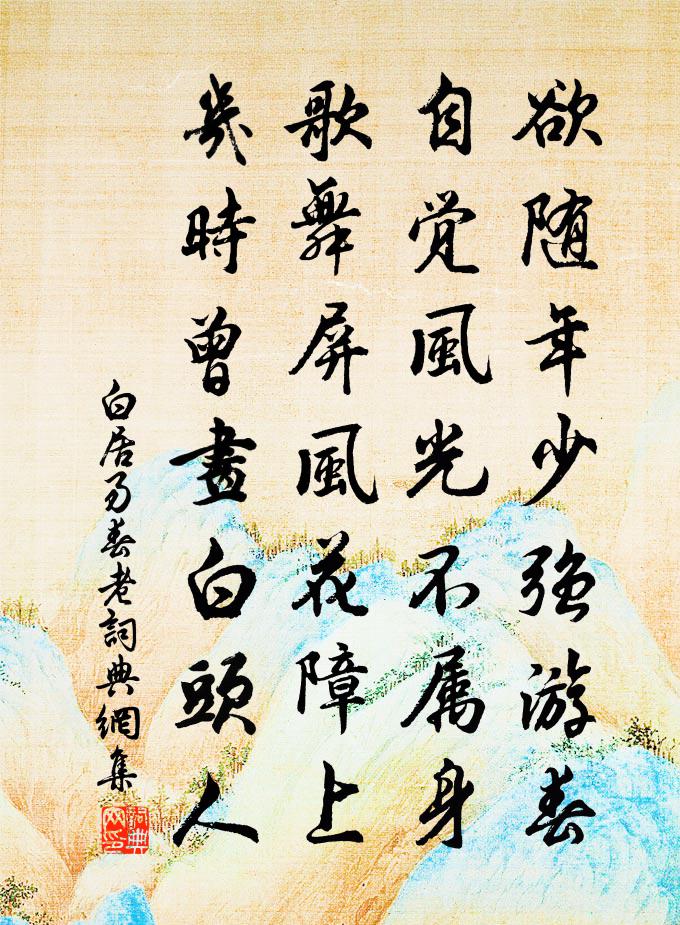 欲随年少強游春
自覚風光不属身
歌舞屏風花障上
幾時曽畫白頭人
白居易春老詞典網集
詞典網印